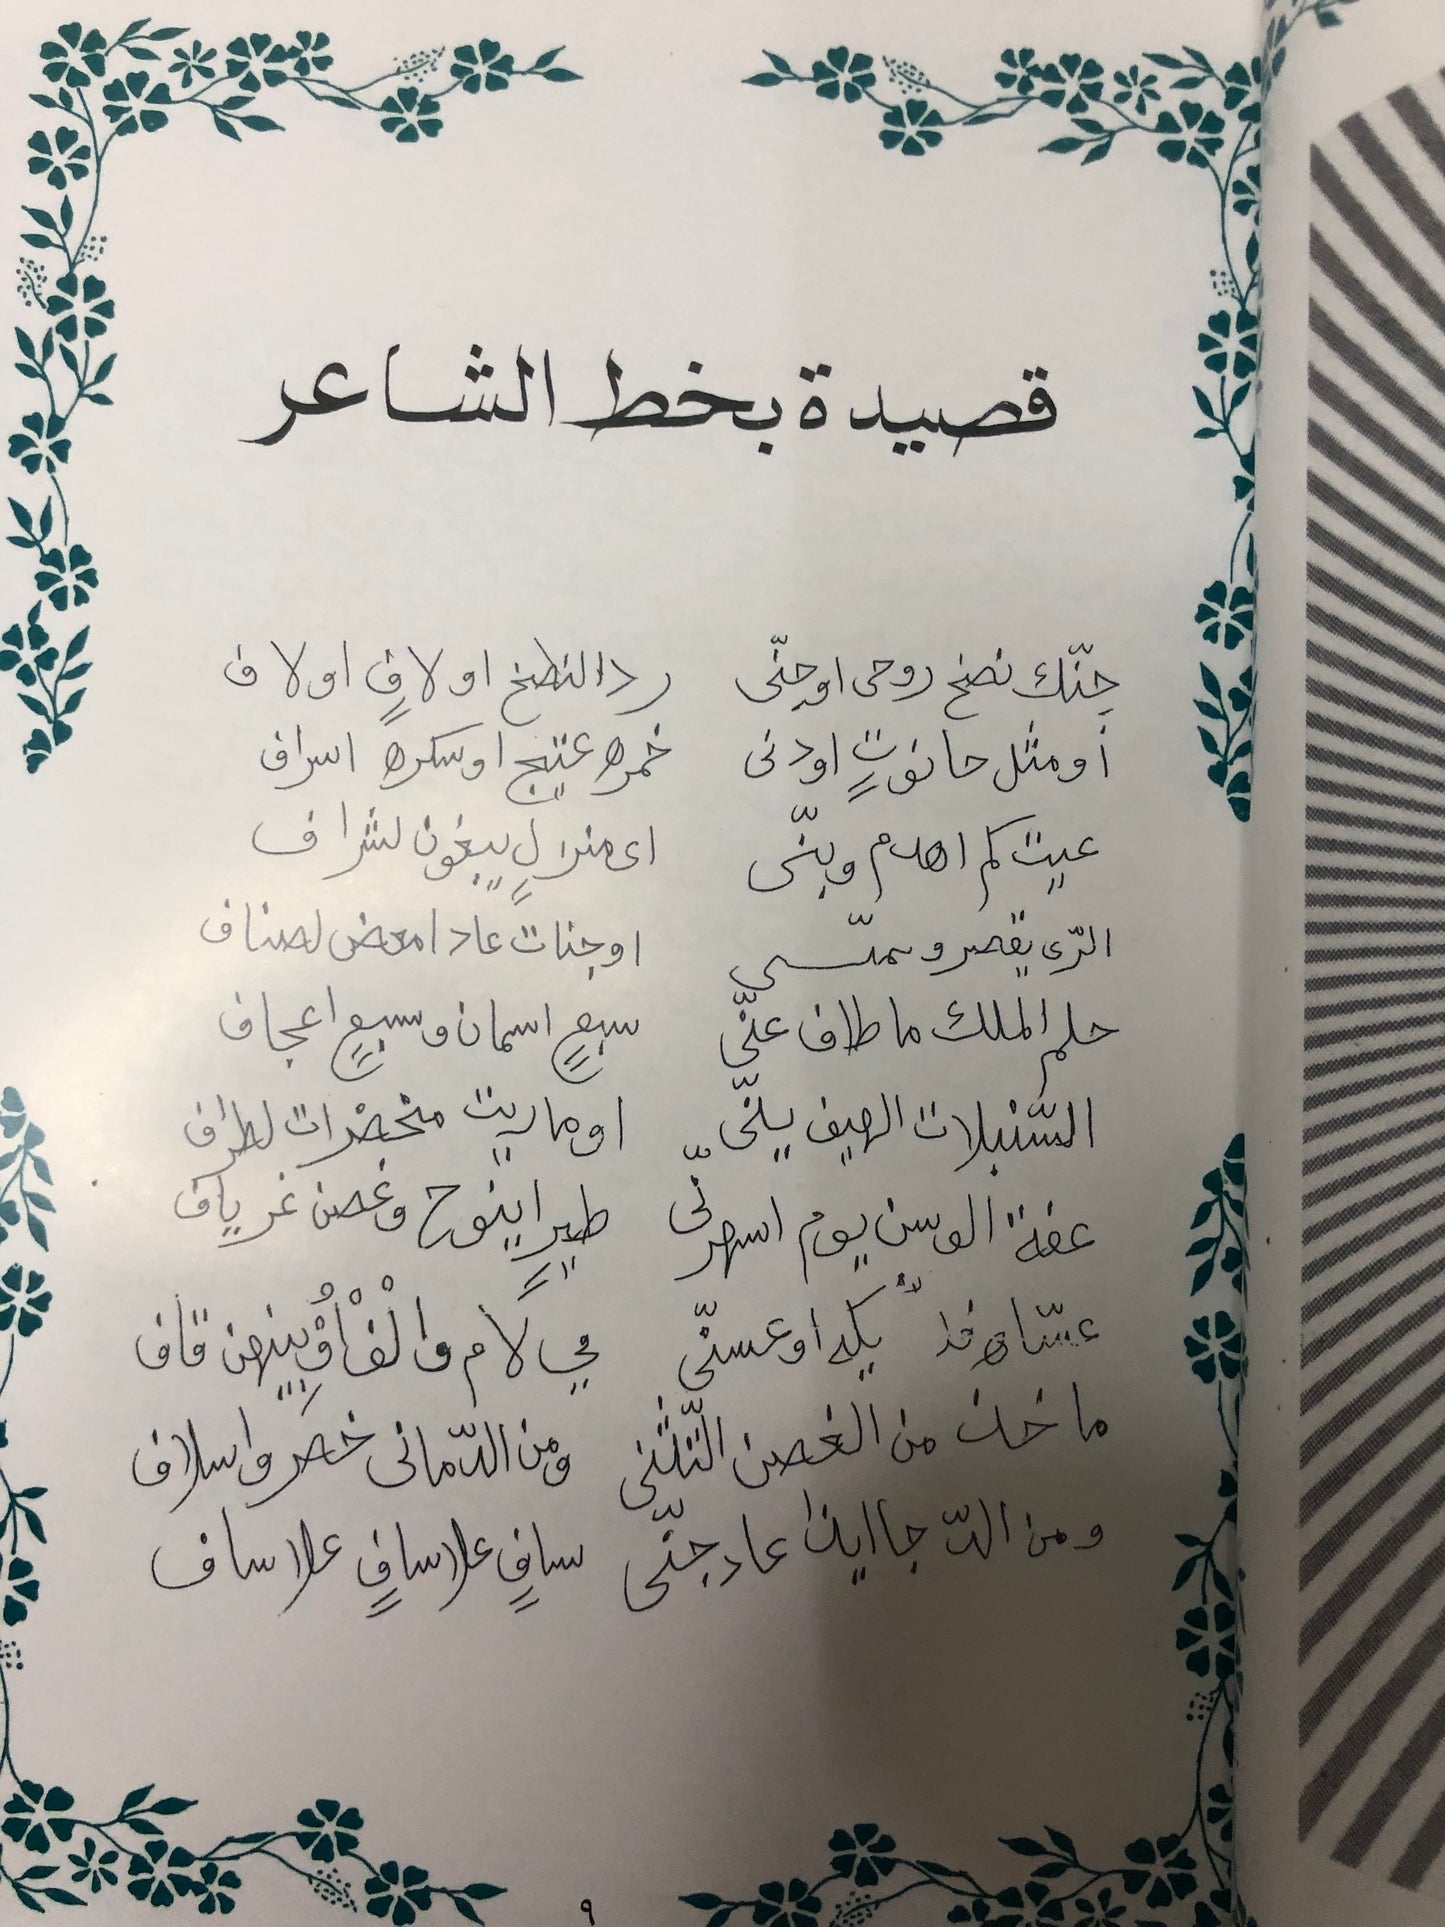 قصيدة بخط الشاعر
جنّك نضخ روحى اوجنّى ردالنظخ اولافٍ اولاف
أومثل حانوتٍ اودنى خمره عتيج اوسكره اسراف
عييت كم اهدم وبنّى اى منزلٍ يبغون لشراف
الرّى يقصر وسمتّى اوجنات عاد امعض لصناف
حلم الملك ماطاف عنّى سبعٍ اسمان وسبعٍ اعجاف
السّنبلات الهيف يلنّى اوماريت مخضرات لطراف
عفة الوسن يوم اسهرنّى طيرٍ اينوح وغصن غرياف
اوعسنّى في لام والْفْ اوْبينهن قاف
ما خذت من الغصن التّثنى ومن الدّمانى خصر واسلاف
ومن الدّجا ايذا عاد جنّى سافٍ علاسافٍ علاساف
٩